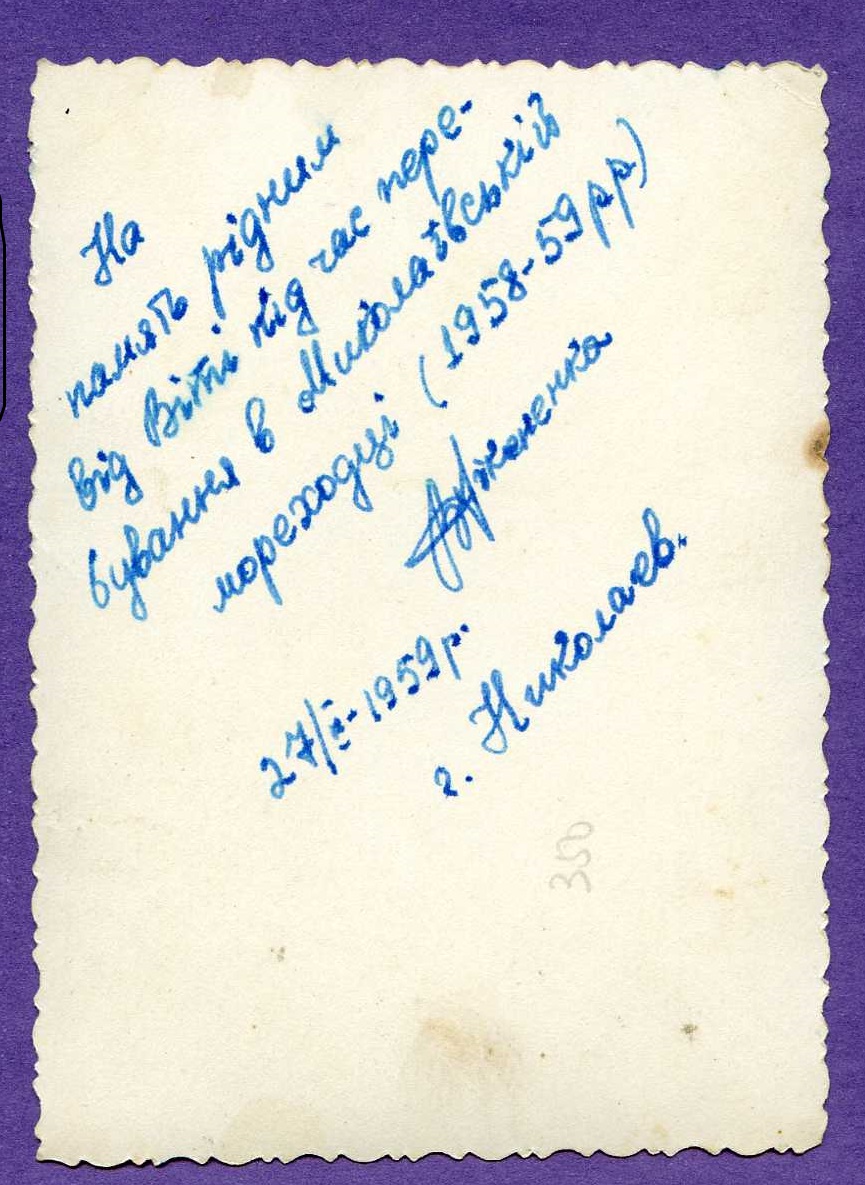 На
память рідним
від Віті під час пере-
бування в Миколаївській
мореходці (1958-59рр)
27/ -1959р.
г. Николаев.
350